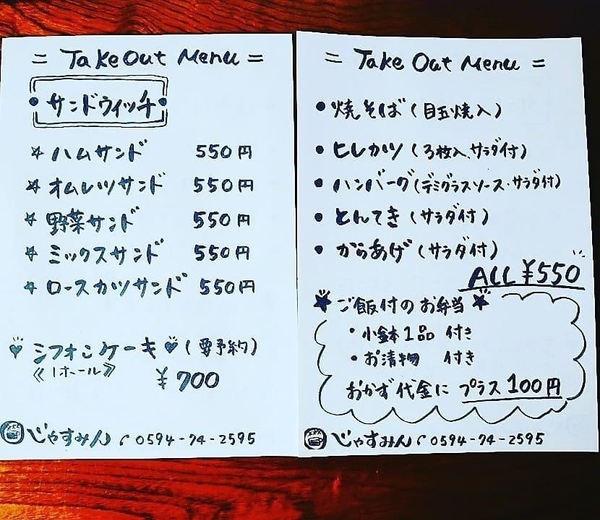 = Take Out Menu =
・サンドウィッチ・
☆ ハムサンド 550円
☆ オムレツサンド 550円
☆ 野菜サンド 550円
☆ ミックスサンド 550円
☆ ロースカツサンド 550円
♥ シフォンケーキ ♥ (要予約)
≪1ホール≫ ¥700
じゃすみん ✆ 0594-74-2595
= Take Out Menu =
• 焼そば (目玉焼入)
• ヒレカツ (3枚入.サラダ付)
• ハンバーグ (デミグラスソース・サラダ付)
• とんてき (サラダ付)
• からあげ (サラダ付)
ALL ¥550
★ ご飯付のお弁当 ★
・小鉢1品 付き
・お漬物 付き
おかず代金に プラス100円
じゃすみん ✆ 0594-74-2595